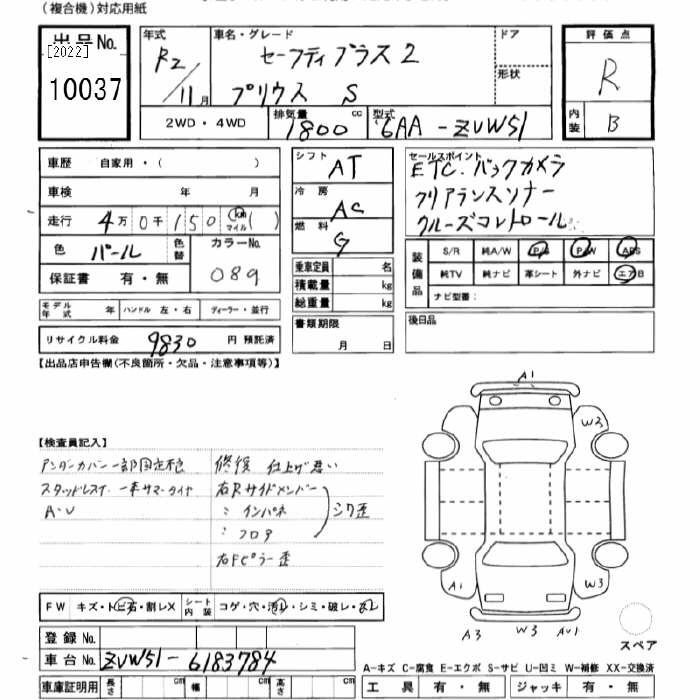 (複合機)対応用紙
出品No.
[2022]
10037
年式
R2/11月
車名・グレード
セーフティプラス2
プリウス S
ドア
形状
評価点
R
内装
B
2WD・4WD
排気量
1800cc
型式
6AA-ZVW51
車歴 自家用・( )
車検 年 月
走行 4万0千150km マイル( )
色 パール
色替
カラーNo.
089
保証書 有・無
モデル年式 年
ハンドル 左・右
ディーラー・並行
リサイクル料金 9830 円 預託済
シフト
AT
冷房
AC
燃料
G
乗車定員 名
積載量 kg
総重量 kg
書類期限
月 日
セールスポイント
ETC. バックカメラ
クリアランスソナー
クルーズコントロール
装備品
S/R 純A/W P/S P/W ABS
純TV 純ナビ 革シート 外ナビ エアB
ナビ型番:
後日品
【出品店申告欄(不良箇所・欠品・注意事項等)】
【検査員記入】
アンダーカバー一部固定不良
スタッドレス
A・U
修復 仕上げ悪い
右Rサイドメンバー
〃 インパネ
〃 フロア
シワ歪
右Fピラー歪
FW キズ・トビ石・割レX
シート内装 コゲ・穴・汚レ・シミ・破レ・
登録No.
車台No. ZVW51-6183784
車庫証明用 長さ cm 幅 cm 高さ cm
A1
W3
A1
W3
A3
W3
AU1
スペア
A-キズ C-腐食 E-エクボ S-サビ U-凹ミ W-補修 XX-交換済
工具 有・無 ジャッキ 有・無